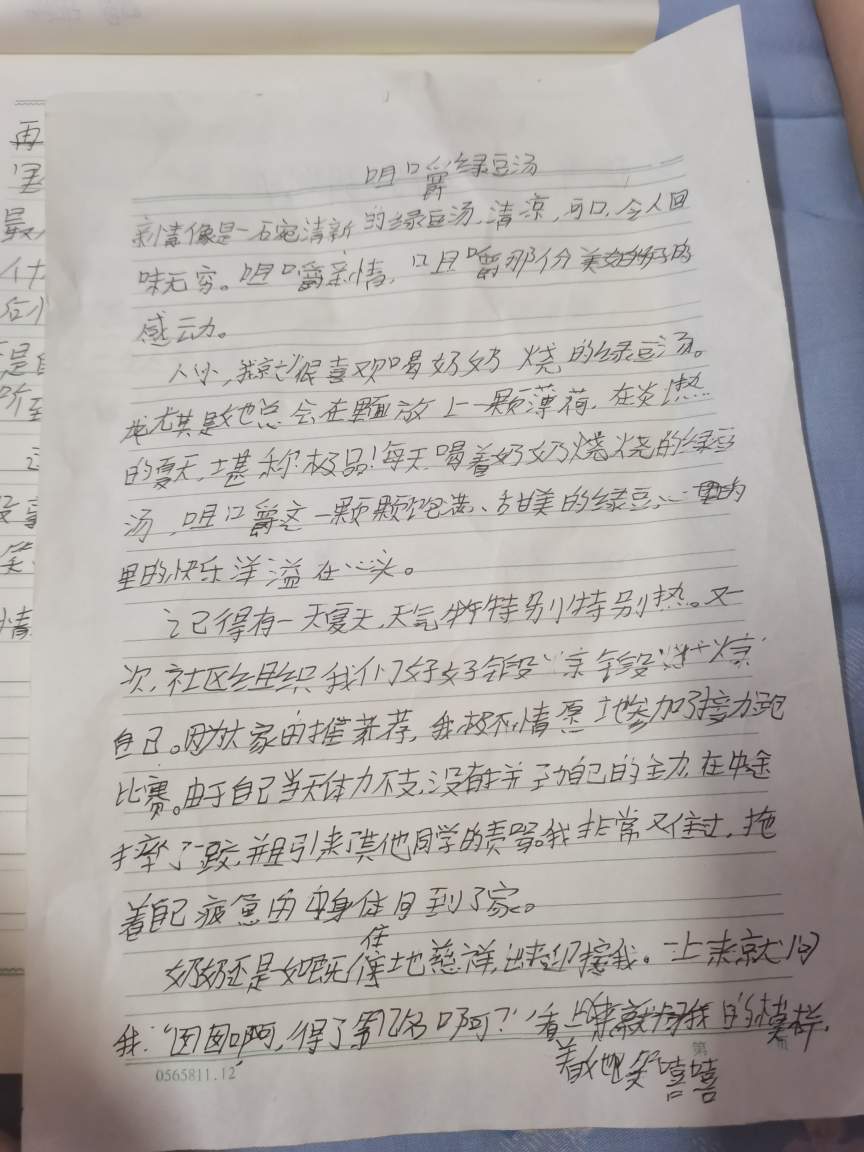 咀嚼绿豆汤
亲情像是一碗清新的绿豆汤,清凉,可口,令人回
味无穷。咀嚼亲情,咀嚼那份美好的
感动。
从小,我就很喜欢喝奶奶烧的绿豆汤。
尤其是她总会在里面放上一颗薄荷,在炎热
的夏天,堪称极品!每天,喝着奶奶烧的绿豆
汤,咀嚼这一颗颗饱满、甘美的绿豆,心
里的快乐洋溢在心头。
记得有一天夏天,天气特别特别热。又一
次,社区组织我们好好锻炼
自己。因为大家的推荐,我极不情愿地参加了接力跑
比赛。由于自己当天体力不支,没有拼尽自己的全力,在中途
摔了一跤,并且引来了其他同学的责骂。我非常难过,拖
着自己疲惫的身体回到了家。
奶奶还是如既往地慈祥,出来迎接我。一上来就问
我:“囡囡啊,得了第几名啊?”看的模样,
着她笑嘻嘻
第 页
0565811.12
再
最
是
情